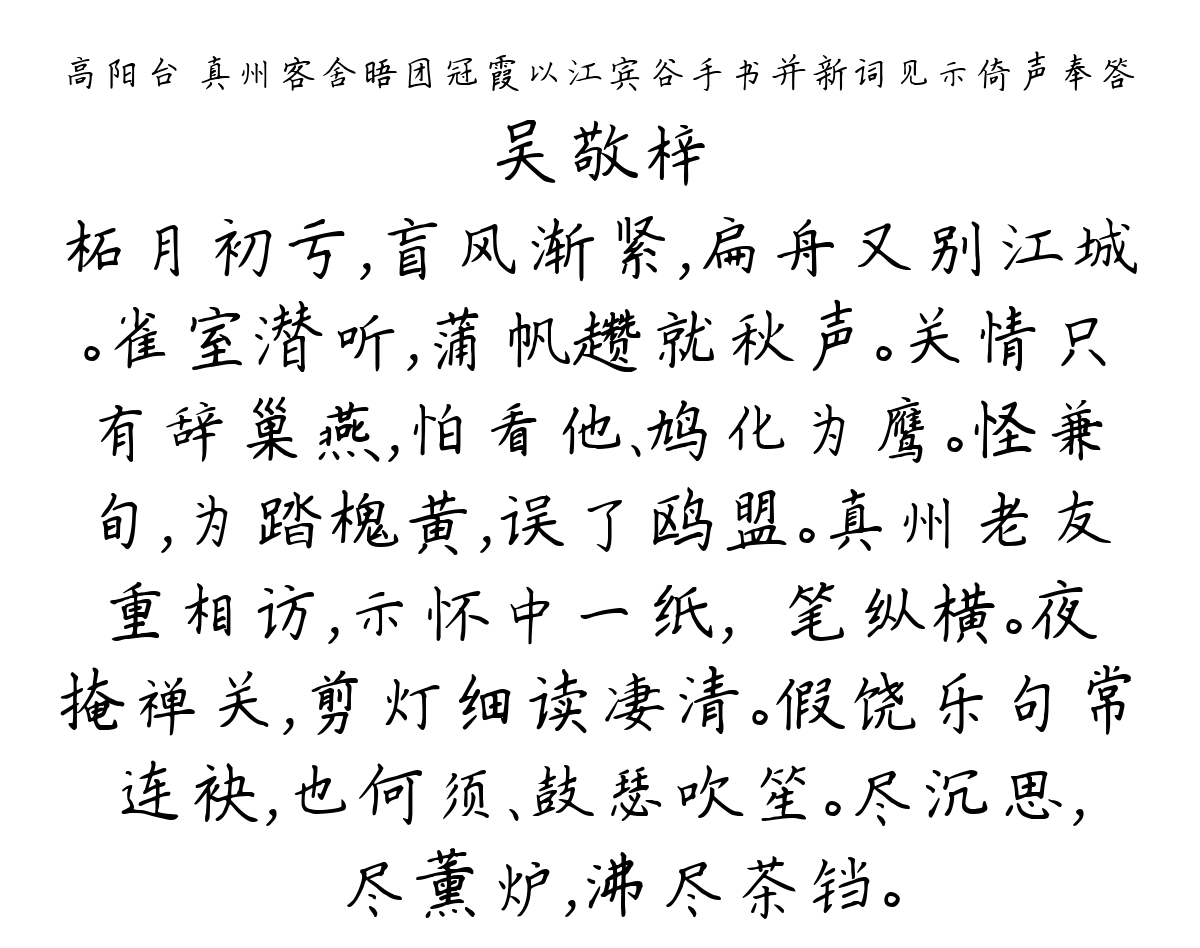 高阳台 真州客舍晤团冠霞以江宾谷手书并新词见示倚声奉答
吴敬梓
柘月初亏,盲风渐紧,扁舟又别江城
。雀室潜听,蒲帆趱就秋声。关情只
有辞巢燕,怕看他、鸠化为鹰。怪兼
旬,为踏槐黄,误了鸥盟。真州老友
重相访,示怀中一纸, 笔纵横。夜
掩禅关,剪灯细读凄清。假饶乐句常
连袂,也何须、鼓瑟吹笙。尽沉思,
尽薰炉,沸尽茶铛。